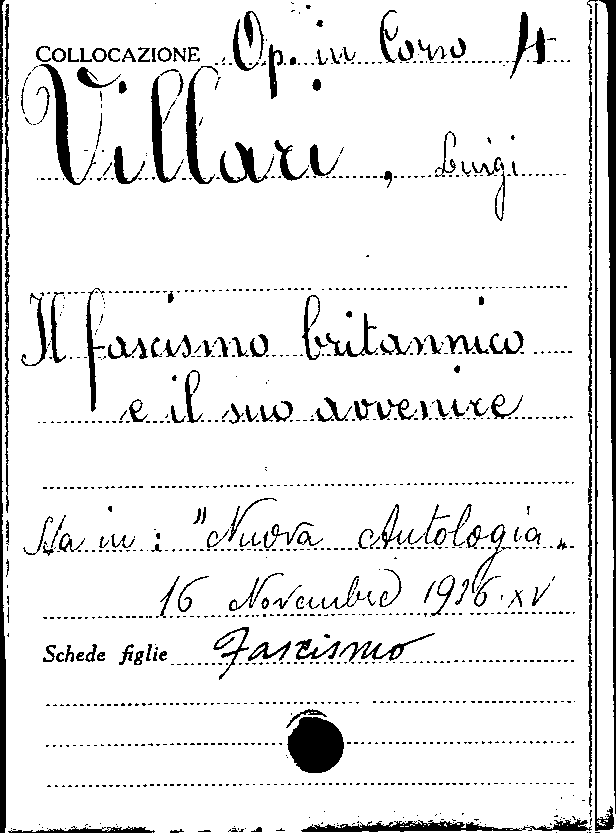 COLLOCAZIONE Op. in Corso 4
Villari, Luigi
Il fascismo britannico
e il suo avvenire
Sta in: "Nuova Antologia"
16 Novembre 1936.XV
Schede figlie Fascismo